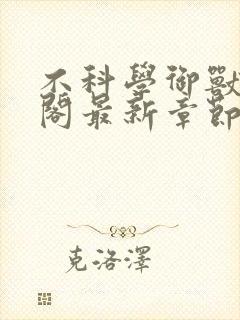 不科學御獸
閣最新章節
克洛澤